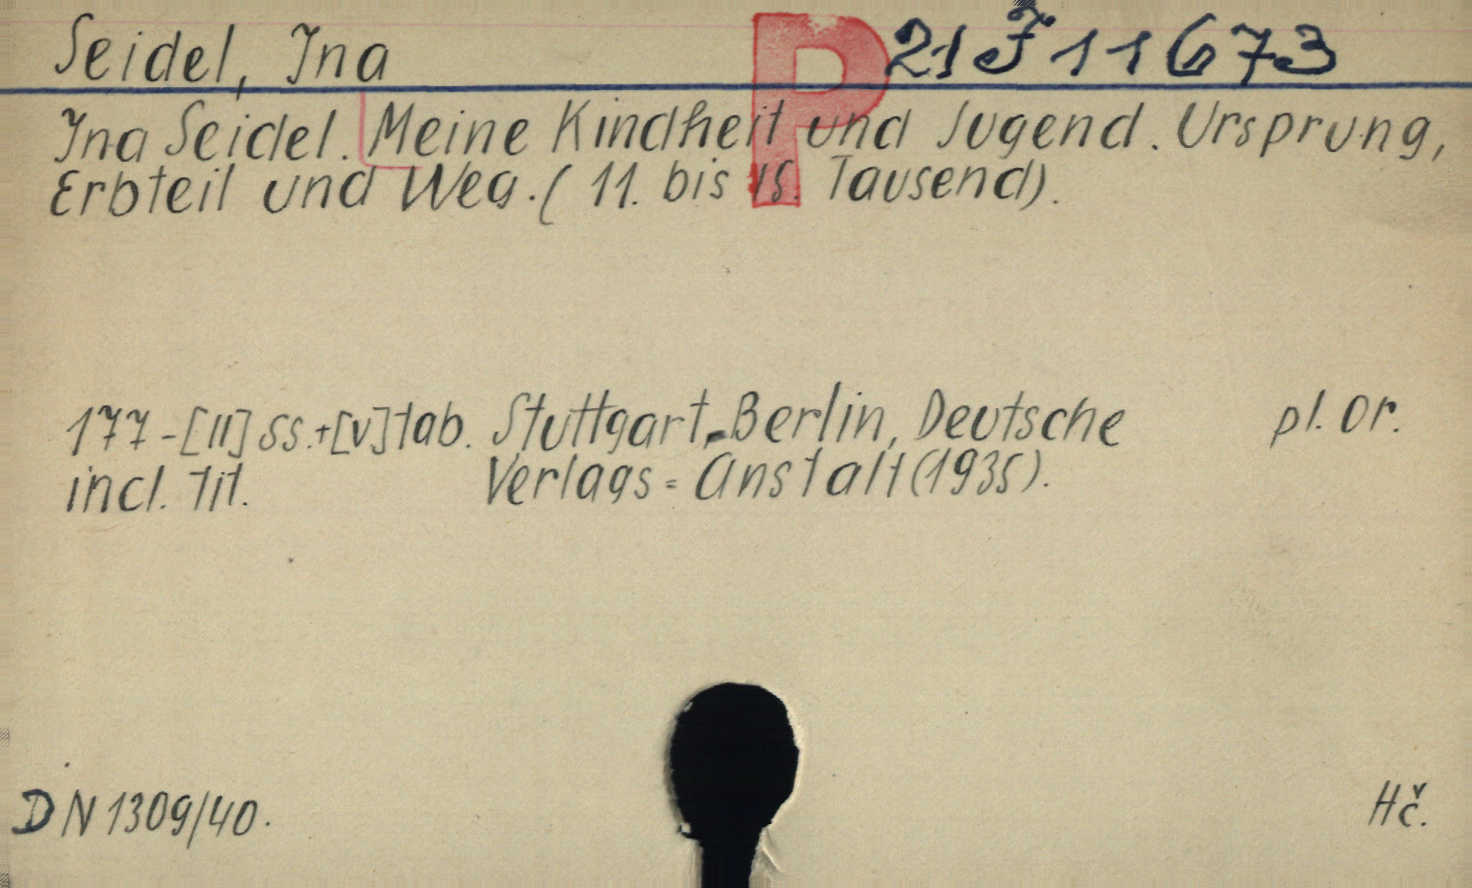 Seidel, Ina
P
21 J 11673
Ina Seidel. Meine Kindheit und Jugend. Ursprung,
Erbteil und Weg. (11. bis 15. Tausend).
177-[II] ss.+[V] tab. Stuttgart-Berlin, Deutsche pl. Or.
incl. tit. Verlags=Anstalt (1935).
DN 1309/40.
Hč.